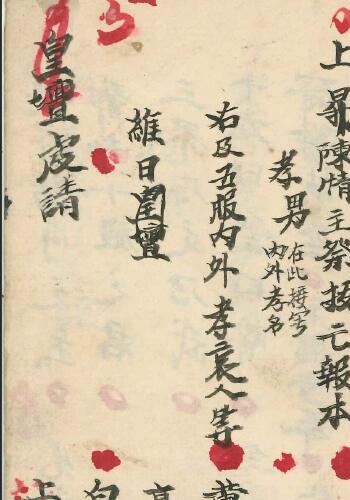 上尋陳情主祭拔亡報本
孝男
在此接寫
內外孝名
右及五服內外孝哀人等
維日圍壇
皇壇虔請